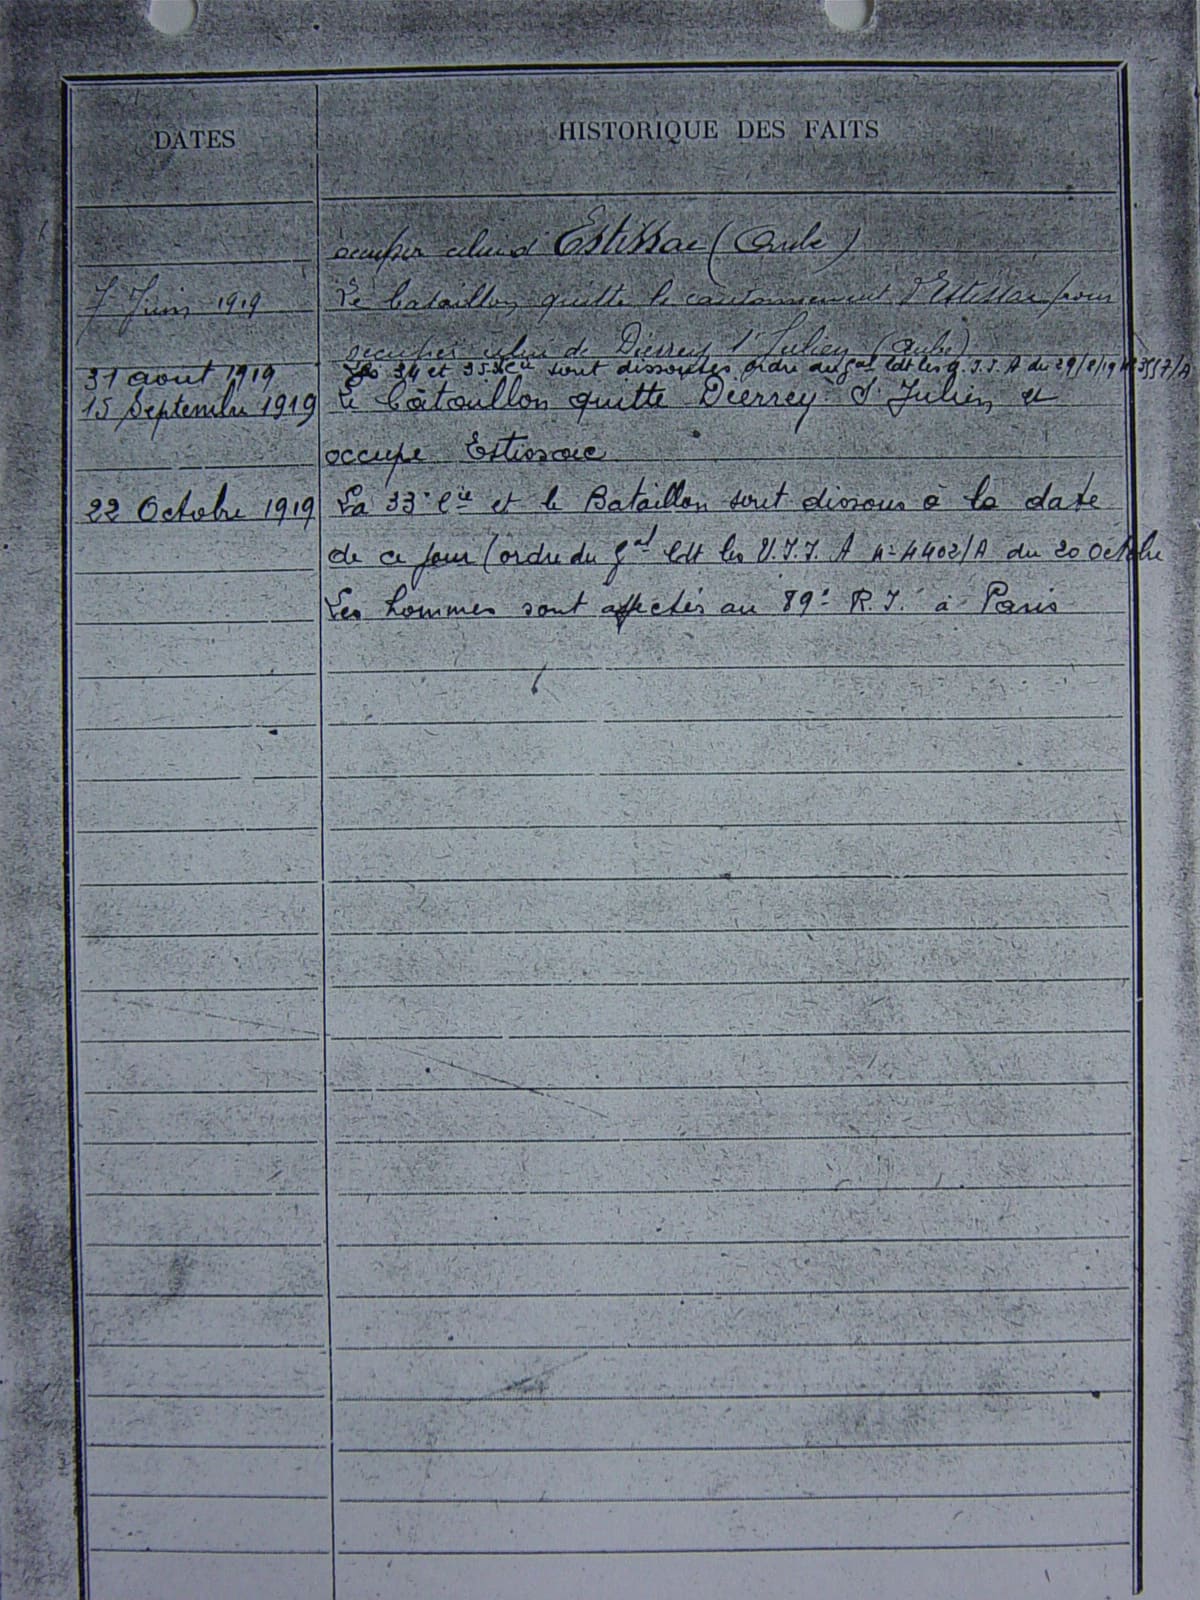 DATES HISTORIQUE DES FAITS
occuper celui d'Estissac (Aube)
7 Juin 1919 Le bataillon quitte le cantonnement d'Estissac pour
occuper celui de Dierrey St Julien (Aube)
31 août 1919 Les 34 et 35e Cie sont dissoutes ordre du Gal Cdt les Q.I.I.A du 29/8/19 No 3557/A
15 Septembre 1919 Le bâtaillon quitte Dierrey St Julien et
occupe Estissac
22 Octobre 1919 La 33e Cie et le Bataillon sont dissous à la date
de ce jour (ordre du Gal Cdt les U.I.I. A no 4402/A du 20 Octobre
Les hommes sont affectés au 89e R.I. à Paris